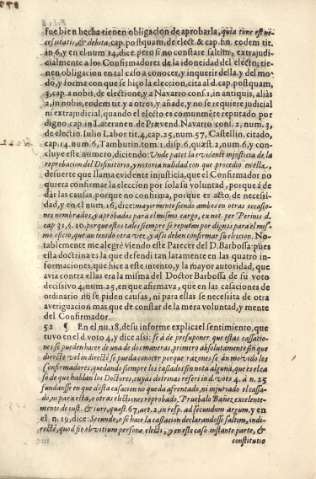 fue bien hecha tienen obligacion de aprobarla, quia tunc est ne-
cessitatis, & debita, cap. postquam, de elect. & cap. fin. eodem tit.
in 6, y en el num 24, dice, pero si no constare saltem, extrajudi-
cialmente a los Confirmadores de la idoneidad del electo, tie-
nen obligacion en tal caso a conocer, y inquerir della y del mo-
do, y forma con que se hiço la eleccion, cita al d. cap. postquam,
3, cap. a nobis, de electione, y a Navarro cons. 1, in antiquis, aliàs
2, in nobis, eodem tit. y a otros, y añade, y no se requiere judicial
ni extrajudicial, quando el electo es comunmẽte reputado por
digno, cap. in Lateranen de Prævend. Navarro cons. 2, num. 3,
de election. Iulio Labor tit. 4, cap. 25, num. 57, Castellin, citado,
cap. 14, num. 6, Tamburin. tom. 1. disp. 6. quæst. 2, num. 6, y con-
cluye este numero, diciendo: Vnde patet la evidente injusticia de la
reprobacion del Difinitorio, y notoria nulidad con que procedio en ella,
desuerte que llama evidente injusticia, que el Confirmador no
quiera confirmar la eleccion por sola su voluntad, porque à de
dar las causas, porque no confirma, porque es acto, de necesi-
dad, y en el num. 26, dice: mayormente siendo ambos en otras ocasio-
nes nombrados, y aprobados para el mismo cargo, ex not. per
cap. 31, 6. 20, porque estos tales siempre se reputan por dignos para el mis-
mo oficio, que an tenido otra vez, y asi se deben confirmar su eleccion. No-
tablemente me alegrè viendo este Parecer del D. Barbossa: pues
esta doctrina es la que defendi tan latamente en las quatro in-
formaciones, que hice a este intento, y la mayor autoridad, que
avia contra ellas era la misma del Doctor Barbossa de su voto
decisivo 4, num. 25, en que afirmava, que en las casaciones de
ordinario ni se piden causas, ni para ellas se necesita de otra
averiguacion mas que de constar de la mera voluntad, y mente
del Confirmador.
52 ¶ En el nu. 18, desu informe explica el sentimiento, que
tuvo en el d. voto 4, y dice asi: se à de presuponer, que estas cassatio-
nes se pueden hacer de una de dos maneras, primero absolutamente sin que
directè vel indirectè se pueda conocer porque razones se àn movido los
Confirmadores, quedando siempre los casados sin nota alguna, que es el ca-
so de que hablan los Doctores, cujus doctrinas referi in d. voto 4, à n. 25
fundandose en que dicha casacion no queda afrentado, ni injuriado el casa-
do, ni para esta, o otras elecciones reprobado, Pruebalo Bañez excelente-
mente de iust. & iure, quæst. 67, art. 2, in resp. ad secundum argum. y en
el n. 19, dice: Secundò, o se hace la casacion declarandose saltem, indi-
rectè, quod sit ob vitium personæ electi, y en este caso instante parte, &
constitutio